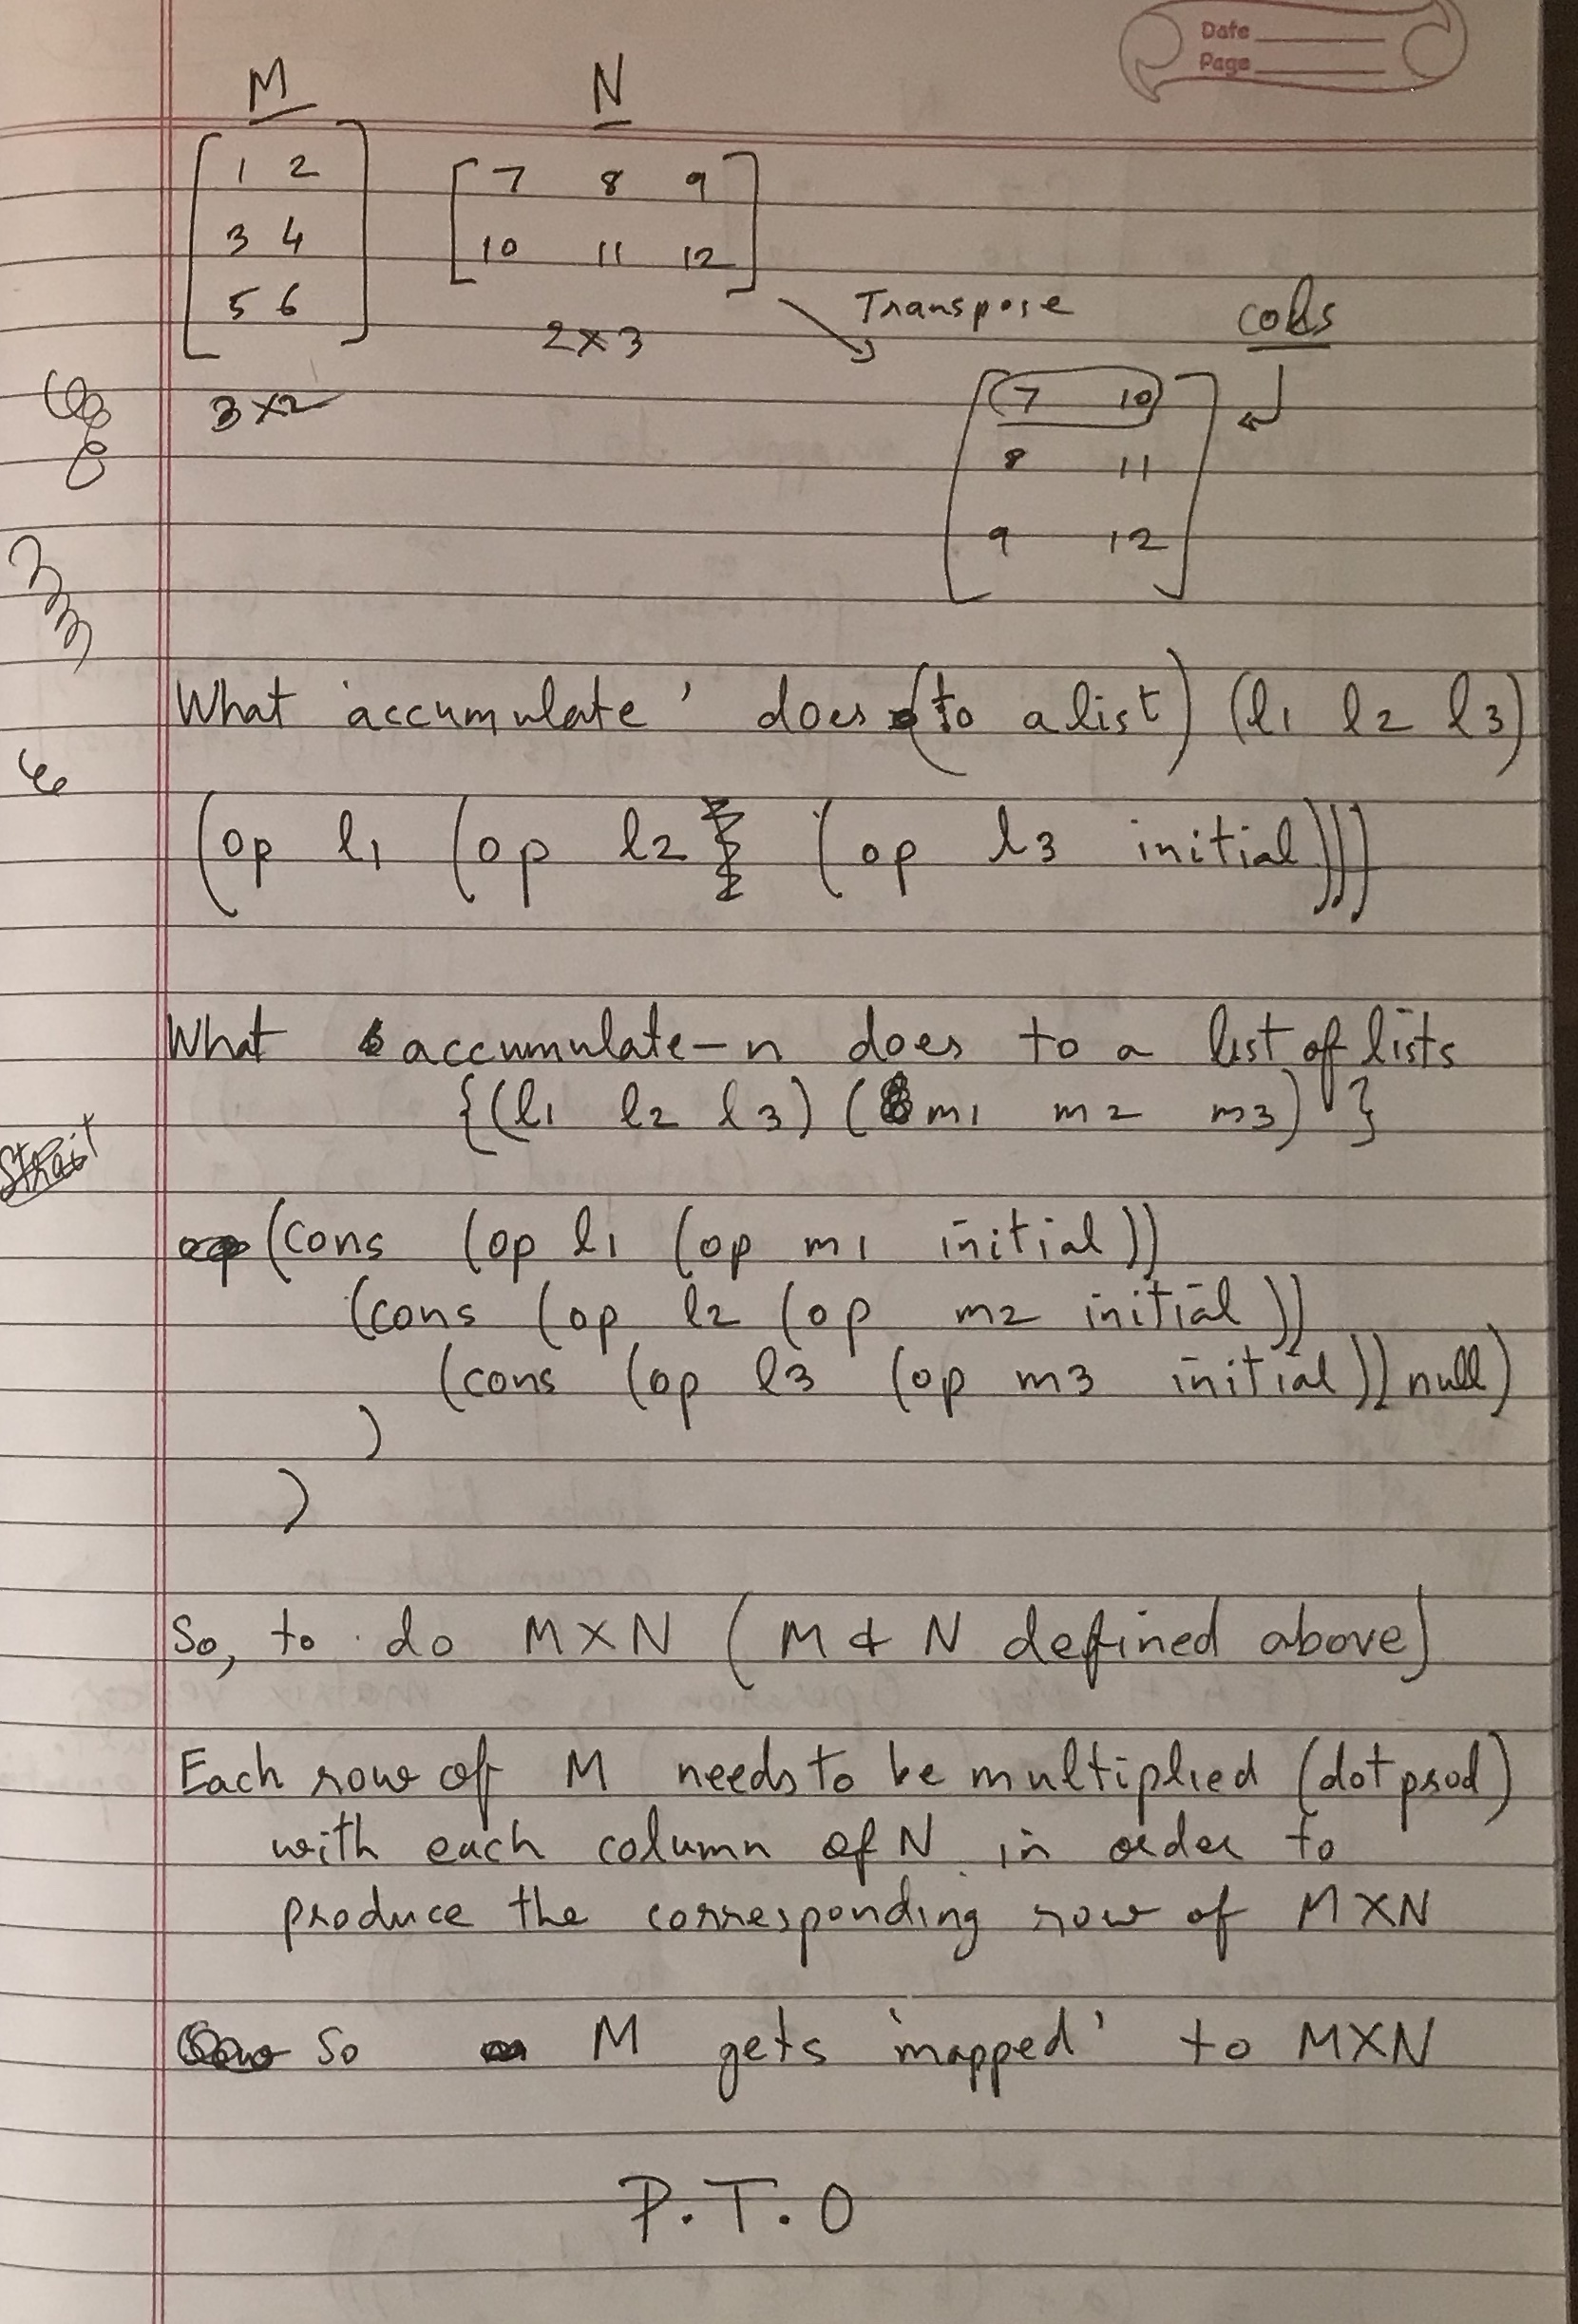 Date
Page
M N
1 2
3 4
5 6
7 8 9
10 11 12
3×2
2×3
Transpose
cols
7 10
8 11
9 12
What 'accumulate' does (to a list) (l1 l2 l3)
(op l1 (op l2 (op l3 initial)))
What accumulate-n does to a list of lists
{(l1 l2 l3) (m1 m2 m3)}
(cons (op l1 (op m1 initial))
(cons (op l2 (op m2 initial))
(cons (op l3 (op m3 initial)) null)
)
)
So, to do M×N (M & N defined above)
Each row of M needs to be multiplied (dot prod)
with each column of N in order to
produce the corresponding row of M×N
So M gets 'mapped' to M×N
P.T.O